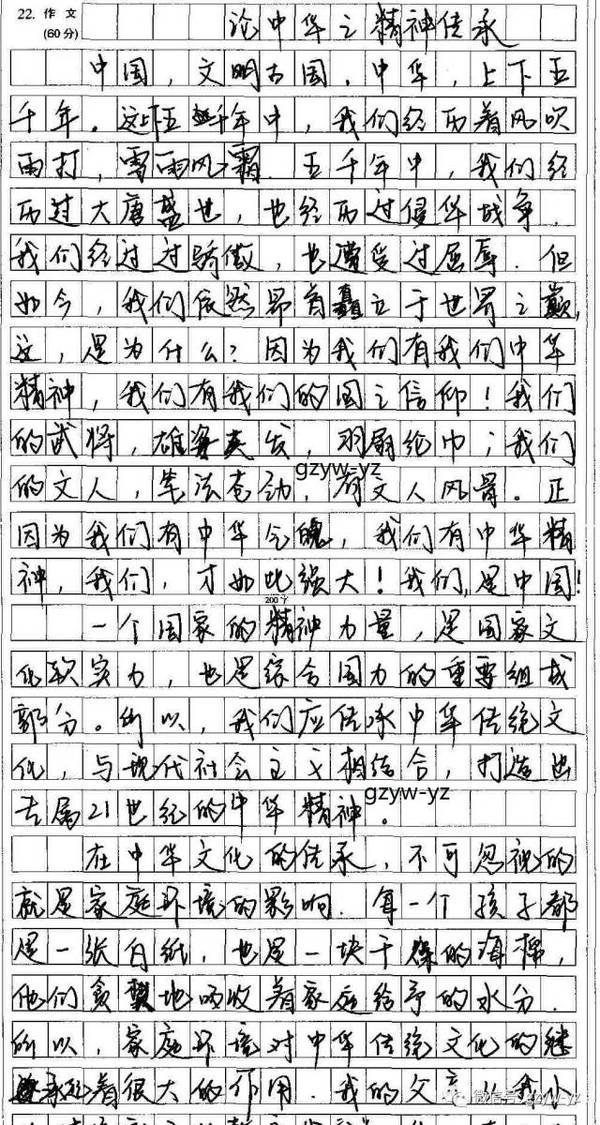 22. 作文
(60分)
论中华之精神传承
中国，文明古国，中华，上下五
千年。这上下五千年中，我们经历着风吹
雨打，雪雨风霜。五千年中，我们经
历过大唐盛世，也经历过侵华战争。
我们经过过骄傲，也遭受过屈辱。但
如今，我们依然昂首矗立于世界之巅，
这，是为什么？因为我们有我们中华
精神，我们有我们的国之信仰！我们
的武将，雄姿英发，羽扇纶巾；我们
gzyw-yz
的文人，笔法苍劲，有文人风骨。正
因为我们有中华气魄，我们有中华精
神，我们，才如此强大！我们，是中国！
200字
一个国家的精神力量，是国家文
化软实力，也是综合国力的重要组成
部分。所以，我们应传承中华传统文
化，与现代社会主义相结合，打造出
gzyw-yz
专属21世纪的中华精神。
在中华文化的传承，不可忽视的
就是家庭环境的影响。每一个孩子都
是一张白纸，也是一块干燥的海棉，
他们贪婪地吸收着家庭给予的水分。
所以，家庭环境对中华传统文化的继
承起着很大的作用。我的父亲从我小
微信号: gzyw-yz